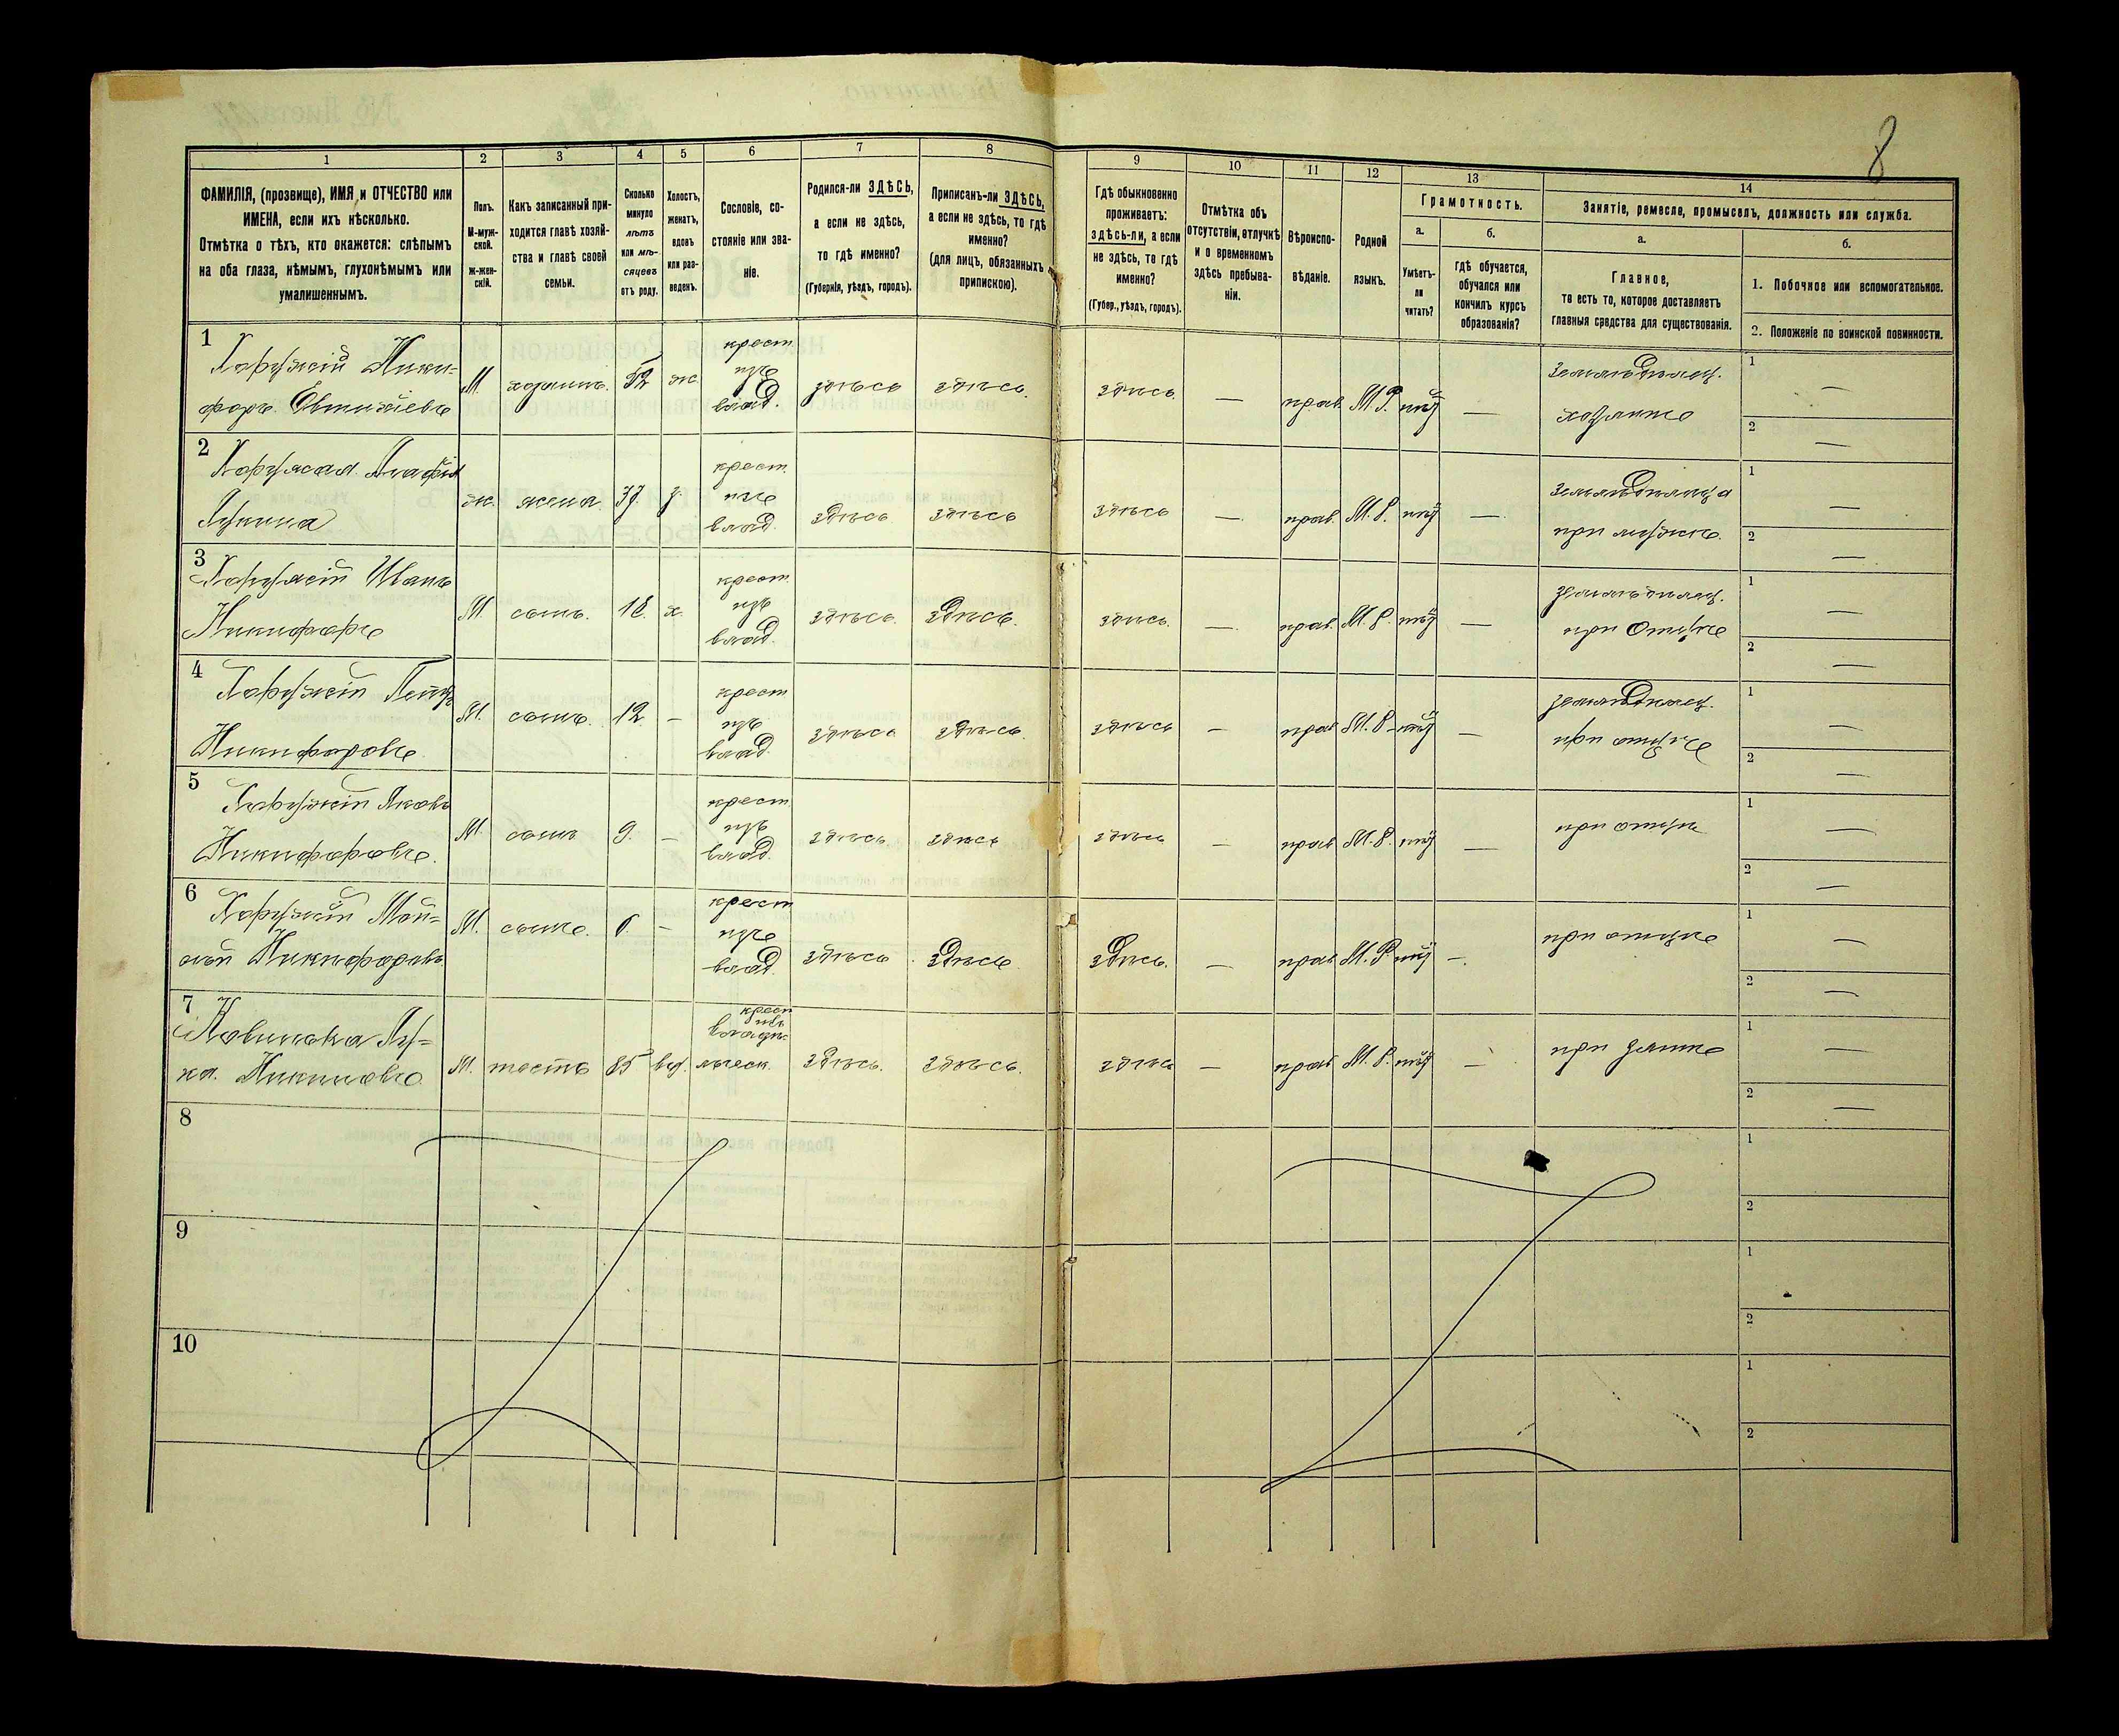 8
1 2 3 4 5 6 7 8 9 10 11 12 13 14
ФАМИЛІЯ, (прозвище), ИМЯ и ОТЧЕСТВО или
ИМЕНА, если ихъ нѣсколько.
Отмѣтка о тѣхъ, кто окажется: слѣпымъ
на оба глаза, нѣмымъ, глухонѣмымъ или
умалишеннымъ.
Полъ.
М-муж-
ской.
ж-жен-
скій.
Какъ записанный при-
ходится главѣ хозяй-
ства и главѣ своей
семьи.
Сколько
минуло
лѣтъ
или мѣ-
сяцевъ
отъ роду.
Холостъ,
женатъ,
вдовъ
или раз-
веденъ.
Сословіе, со-
стояніе или зва-
ніе.
Родился-ли ЗДѢСЬ,
а если не здѣсь,
то гдѣ именно?
(Губернія, уѣздъ, городъ).
Приписанъ-ли ЗДѢСЬ,
а если не здѣсь, то гдѣ
именно?
(для лицъ, обязанныхъ
припискою).
Гдѣ обыкновенно
проживаетъ:
здѣсь-ли, а если
не здѣсь, то гдѣ
именно?
(Губер., уѣздъ, городъ).
Отмѣтка объ
отсутствіи, отлучкѣ
и о временномъ
здѣсь пребыва-
ніи.
Вѣроиспо-
вѣданіе.
Родной
языкъ.
Грамотность.
а.
Умѣетъ-
ли
читать?
б.
гдѣ обучается,
обучался или
кончилъ курсъ
образованія?
Занятіе, ремесло, промыселъ, должность или служба.
а.
Главное,
то есть то, которое доставляетъ
главныя средства для существованія.
б.
1. Побочное или вспомогательное.
2. Положеніе по воинской повинности.
1
Хоружій Ники-
форъ Евтихіевъ
М. хозяинъ. 52 ж.
крест.
изъ
влад.
здѣсь здѣсь. здѣсь — прав. М.Р. нѣт —
земледѣлец.
хозяинъ
1 —
2 —
2
Хоружая
Лукина
ж. жена 37. з.
крест.
изъ
влад.
здѣсь здѣсь здѣсь — прав. М.Р. нѣт —
земледѣлица
при мужѣ.
1 —
2 —
3
Хоружій Иванъ
Никифоръ
М. сынъ. 18. х.
крест.
изъ
влад.
здѣсь. здѣсь. здѣсь. — прав. М.Р. нѣт —
земледѣлец.
при Отцѣ
1 —
2 —
4
Хоружій Петръ
Никифоровъ
М. сынъ. 12. —
крест.
изъ
влад.
здѣсь здѣсь. здѣсь — прав. М.Р. нѣт —
земледѣлец.
при отцѣ
1 —
2 —
5
Хоружій Яковъ
Никифоровъ.
М. сынъ 9. —
крест.
изъ
влад.
здѣсь здѣсь здѣсь — прав. М.Р. нѣт —
при отцѣ
1 —
2 —
6
Хоружій Мой-
сей Никифоровъ
М. сынъ. —
крест.
изъ
влад.
здѣсь здѣсь здѣсь. — прав. М.Р. нѣт —.
при отцѣ
1 —
2 —
7
Лу-
ка.
М. тесть 85 вд.
крест.
изъ
владѣ-
льческ.
здѣсь. здѣсь. здѣсь — прав. М.Р. нѣт —
при зятѣ
1 —
2 —
8
1
2
9
1
2
10
1
2